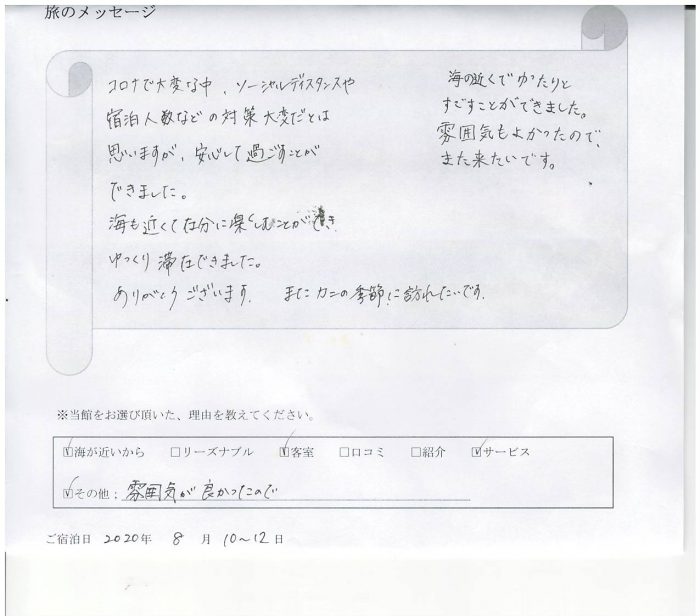 旅のメッセージ
コロナで大変な中、ソーシャルディスタンスや
宿泊人数などの対策大変だとは
思いますが、安心して過ごすことが
できました。
海も近くて存分に楽しむことができ
ゆっくり滞在できました。
ありがとうございます。 またカニの季節に訪れたいです。
海の近くでゆったりと
すごすことができました。
雰囲気もよかったので、
また来たいです。
※当館をお選び頂いた、理由を教えてください。
☑海が近いから □リーズナブル ☑客室 □口コミ □紹介 ☑サービス
☑その他：雰囲気が良かったので
ご宿泊日 2020年 8 月 10～12日